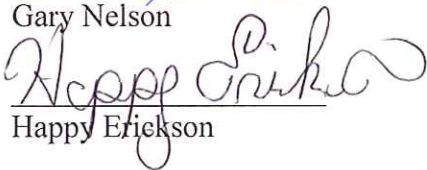 Gary Nelson
Happy Erickson
Happy Erickson